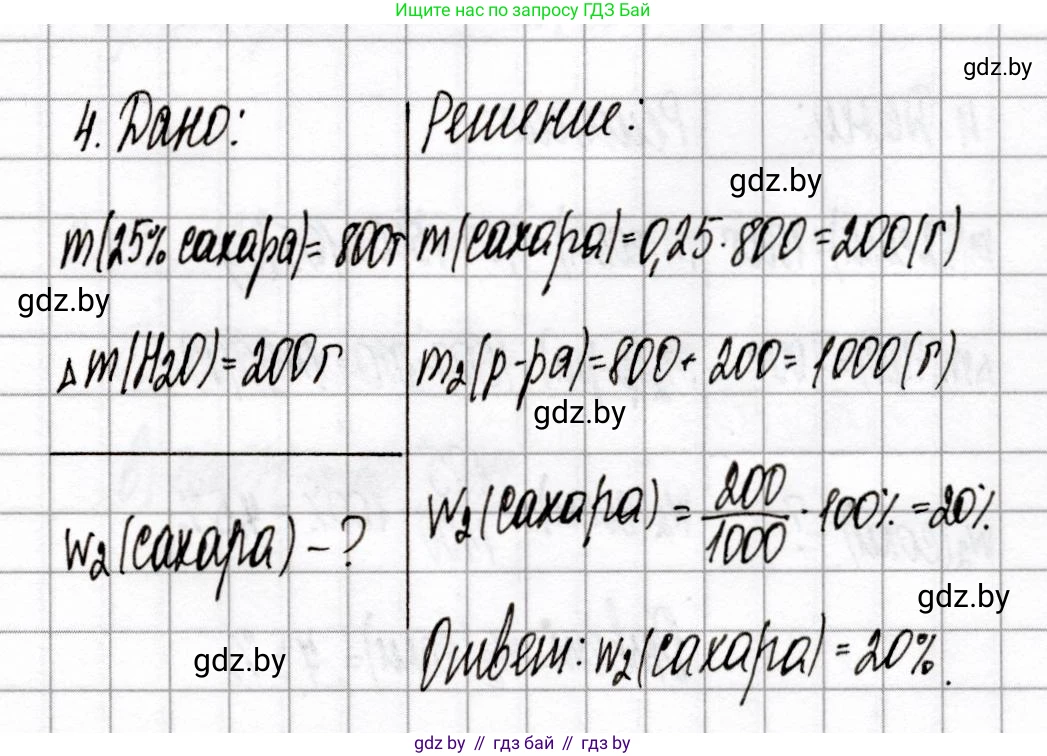 Ищите нас по запросу ГДЗ Бай
gdz.by
4. Дано:
m(25% сахара)=800г
gdz.by
Δm(H2O)=200г
w2(сахара) - ?
gdz.by
Решение:
gdz.by
m(сахара)=0,25·800=200(г)
m2(р-ра)=800+200=1000(г)
gdz.by
w2(сахара) = 200/1000 · 100% =20%
gdz.by
Ответ: w2(сахара)=20%.
gdz.by // гдз бай // гдз by